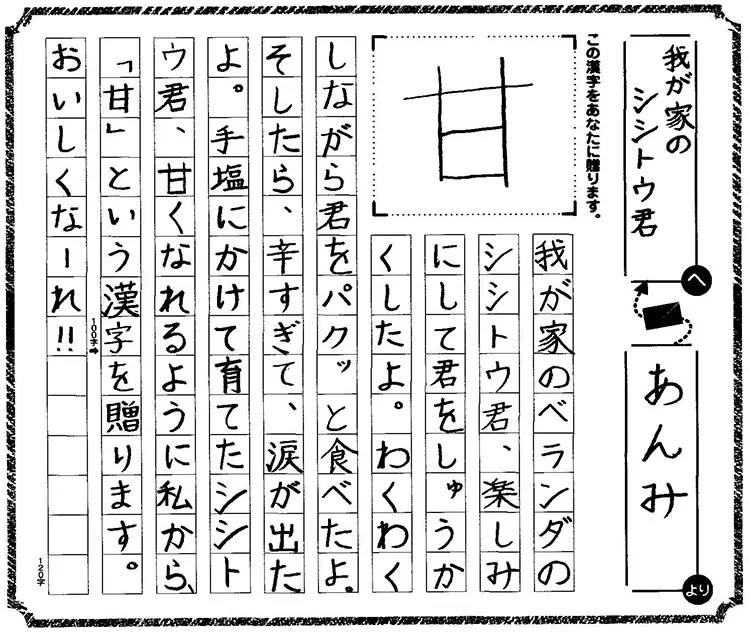 我が家の
シシトウ君
へ
あんみ
より
この漢字をあなたに贈ります。
甘
我が家のベランダの
シシトウ君、楽しみ
にして君をしゅうか
くしたよ。わくわく
しながら君をパクッと食べたよ。
そしたら、辛すぎて、涙が出た
よ。手塩にかけて育てたシシト
ウ君、甘くなれるように私から、
「甘」という漢字を贈ります。
100字
おいしくなーれ!!
120字